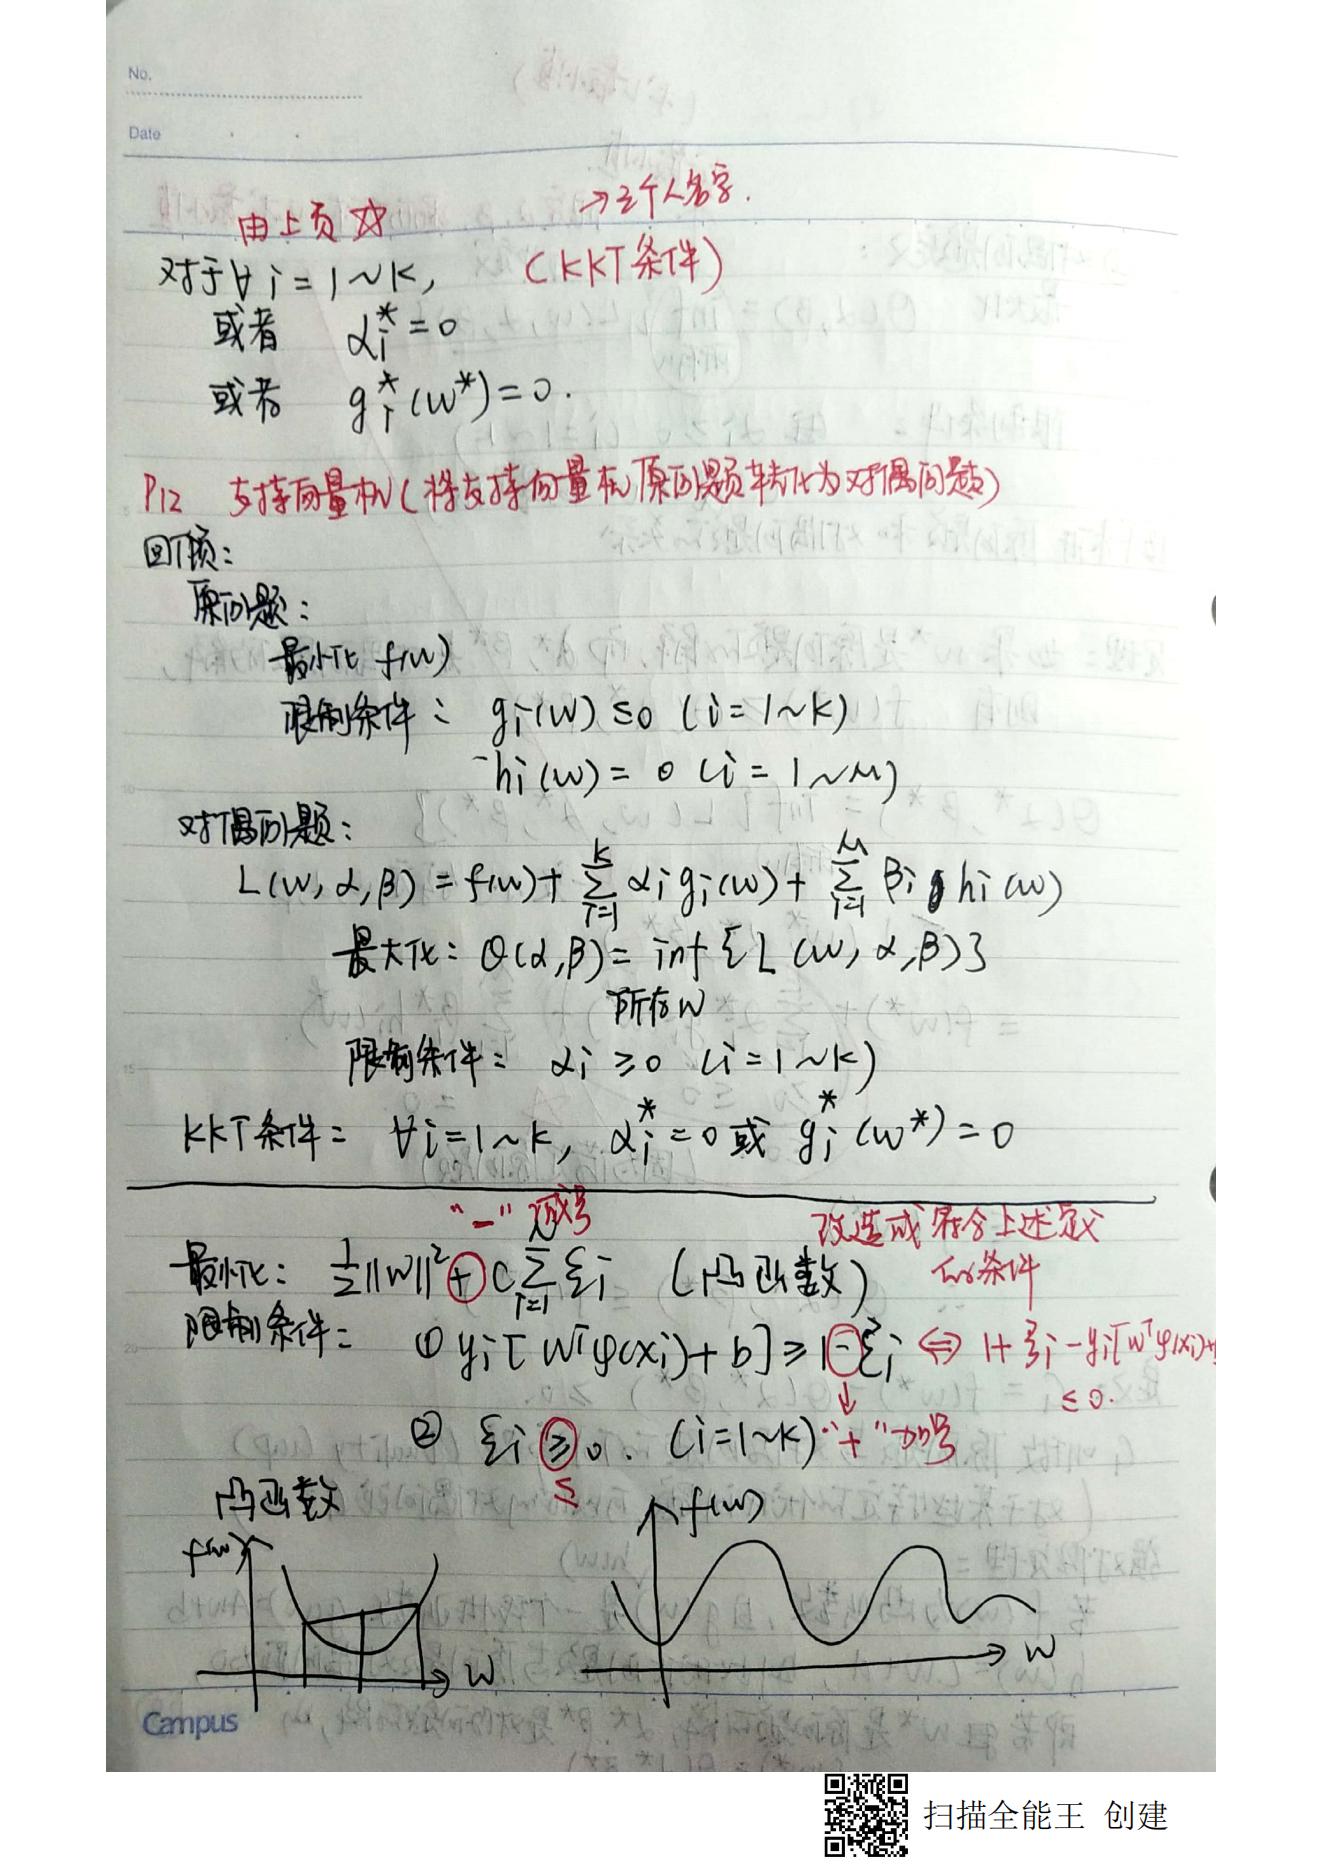 No.
Date
→三个人名字.
由上页☆
对于∀i=1~K, (KKT条件)
或者 αi*=0
或者 gi*(W*)=0.
P12 支持向量机(将支持向量机原问题转化为对偶问题)
回顾:
原问题:
最小化 f(w)
限制条件: gi(W)≤0 (i=1~K)
hi(W)=0 (i=1~M)
对偶问题:
L(W,α,β)=f(w)+∑_{i=1}^{K} αi gi(W)+∑_{i=1}^{M} βi hi(W)
最大化: θ(α,β)=inf{L(W,α,β)}
所有W
限制条件: αi≥0 (i=1~K)
KKT条件: ∀i=1~K, αi*=0或 gi*(W*)=0
“-”减号 改造成符合上述定义
最小化: 1/2||W||²+C∑_{i=1} ξi (凸函数) 的条件
限制条件: ① yi[WᵀΨ(Xi)+b]≥1-ξi ⇔ 1+ξi-yi[WᵀΨ(Xi)+
↓ ≤0.
② ξi≥0. (i=1~K) “+”加号
≤
凸函数
f(w) f(w)
W W
Campus
扫描全能王 创建